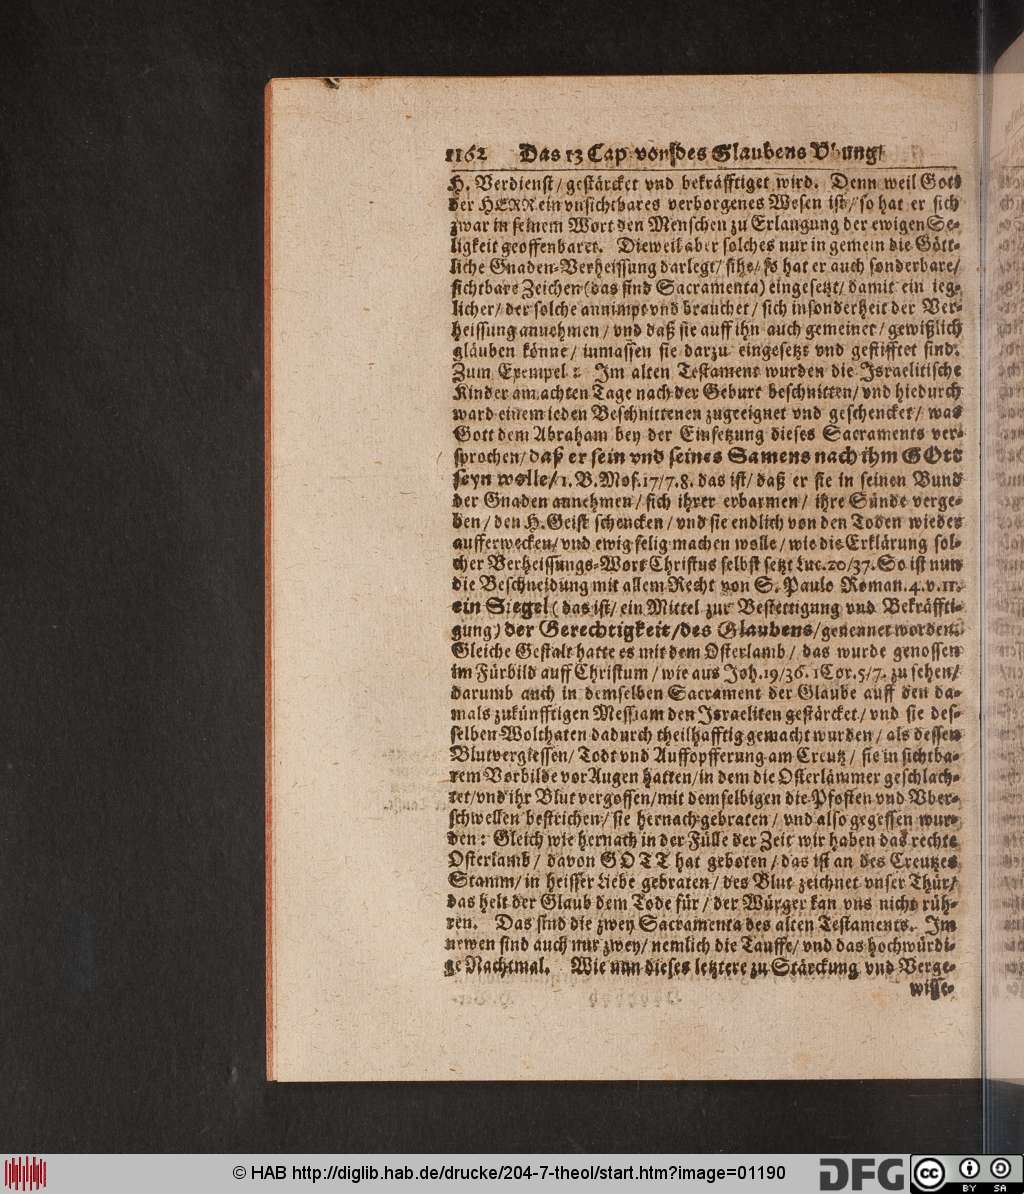 1162 Das 13 Cap von des Glaubens Vbung/
H. Verdienst/ gestärcket vnd bekräfftiget wird. Denn weil Gott
der HERR ein vnsichtbares verborgenes Wesen ist/ so hat er sich
zwar in seinem Wort den Menschen zu Erlangung der ewigen Se-
ligkeit geoffenbaret. Dieweil aber solches nur in gemein die Gött-
liche Gnaden-Verheissung darlegt/ sihe/ so hat er auch sonderbare/
sichtbare Zeichen (das sind Sacramenta) eingesetzt/ damit ein ieg-
licher/ der solche annimpt vnd brauchet/ sich insonderheit der Ver-
heissung annehmen/ vnd daß sie auff ihn auch gemeinet/ gewißlich
gläuben könne/ inmassen sie darzu eingesetzt vnd gestifftet sind.
Zum Exempel: Im alten Testament wurden die Israelitische
Kinder am achten Tage nach der Geburt beschnitten/ vnd hiedurch
ward einem ieden Beschnittenen zugeeignet vnd geschencket/ was
Gott dem Abraham bey der Einsetzung dieses Sacraments ver-
sprochen/ daß er sein vnd seines Samens nach ihm GOtt
seyn wolle/ 1. B. Mos. 17/7.8. das ist/ daß er sie in seinen Bund
der Gnaden annehmen/ sich ihrer erbarmen/ ihre Sünde verge-
ben/ den H. Geist schencken/ vnd sie endlich von den Toden wieder
aufferwecken/ vnd ewig selig machen wolle/ wie die Erklärung sol-
cher Verheissungs-Wort Christus selbst setzt Luc. 20/37. So ist nun
die Beschneidung mit allem Recht von S. Paulo Roman. 4. v. 11.
ein Siegel (das ist/ ein Mittel zur Bestettigung vnd Bekräffti-
gung) der Gerechtigkeit/ des Glaubens/ genennet worden.
Gleiche Gestalt hatte es mit dem Osterlamb/ das wurde genossen
im Fürbild auff Christum/ wie aus Joh. 19/36. 1 Cor. 5/7. zu sehen/
darumb auch in demselben Sacrament der Glaube auff den da-
mals zukünfftigen Messiam den Israeliten gestärcket/ vnd sie des-
selben Wolthaten dadurch theilhafftig gemacht wurden/ als dessen
Blutvergiessen/ Todt vnd Auffopfferung am Creutz/ sie in sichtba-
rem Vorbilde vor Augen hatten/ in dem die Osterlämmer geschlach-
tet/ vnd ihr Blut vergossen/ mit demselbigen die Pfosten vnd Vber-
schwellen bestrichen/ sie hernach gebraten/ vnd also gegessen wur-
den: Gleich wie hernach in der Fülle der Zeit wir haben das rechte
Osterlamb/ davon GOTT hat geboten/ das ist an des Creutzes
Stamm/ in heisser Liebe gebraten/ des Blut zeichnet vnser Thür/
das helt der Glaub dem Tode für/ der Würger kan vns nicht rüh-
ren. Das sind die zwey Sacramenta des alten Testaments. Im
newen sind auch nur zwey/ nemlich die Tauffe/ vnd das hochwürdi-
ge Nachtmal. Wie nun dieses letztere zu Stärckung vnd Verge-
wisse-
© HAB http://diglib.hab.de/drucke/204-7-theol/start.htm?image=01190
DFG
cc BY SA